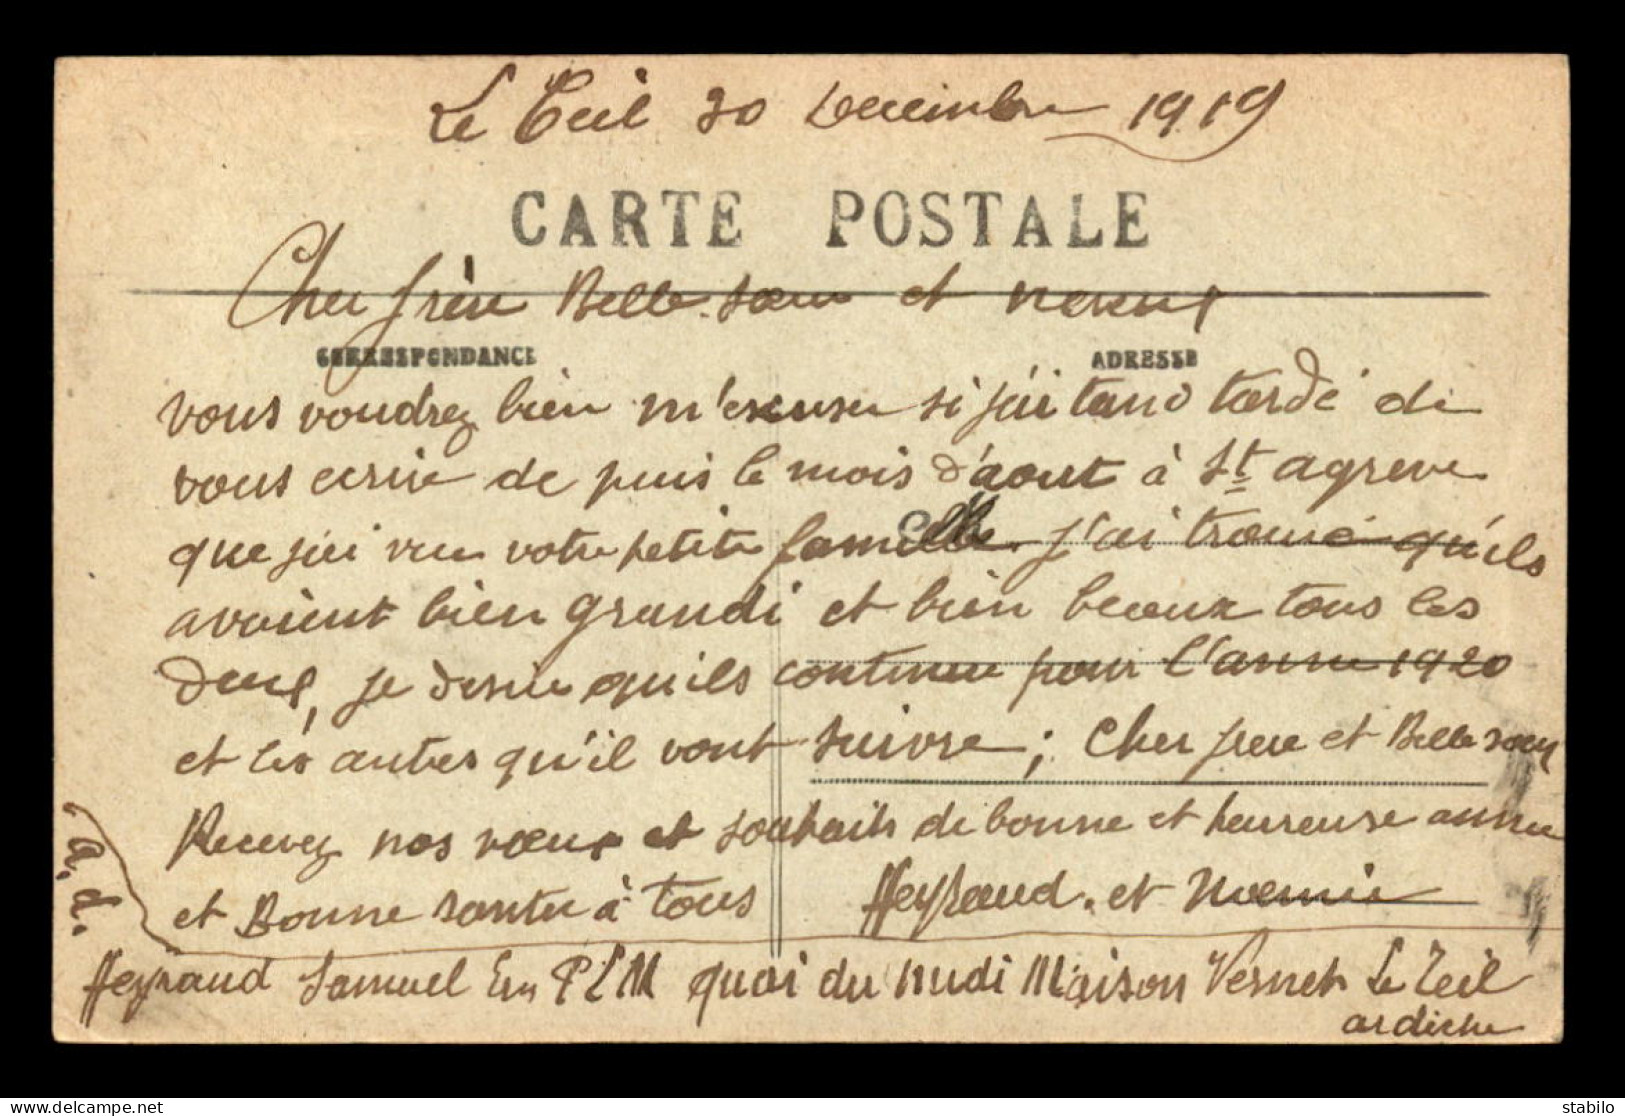 Le Teil 30 Decembre 1919
CARTE POSTALE
Cher frère Belle-sœur et neveux
CORRESPONDANCE
ADRESSE
vous voudrez bien m'excuser si j'ai tand tardé de
vous ecrire de puis le mois d'aout à St agreve
que j'ai vue votre petite famille. J'ai trouvé qu'ils
avaient bien grandi et bien beaux tous les
deux, je desire qu'ils continue pour l'anne 1920
et les autres qu'il vont suivre ; Cher frere et Belle sœur
Recevez nos vœux et souhaits de bonne et heureuse année
et Bonne santée à tous Heyraud. et Noemie
a. d.
Heyraud Samuel Em PLM quai du midi Maison Vernet Le Teil
ardeche
stabilo